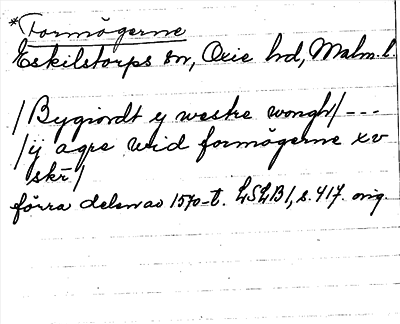 *Formögerne
Eskilstorps sn, Oxie hd, Malm. l.
/Bygiordt ij westre wongh/ ---
/ij agre wid formögerne xv
skr/
förra delen av 1570-t. LSLB1, s. 417. orig.